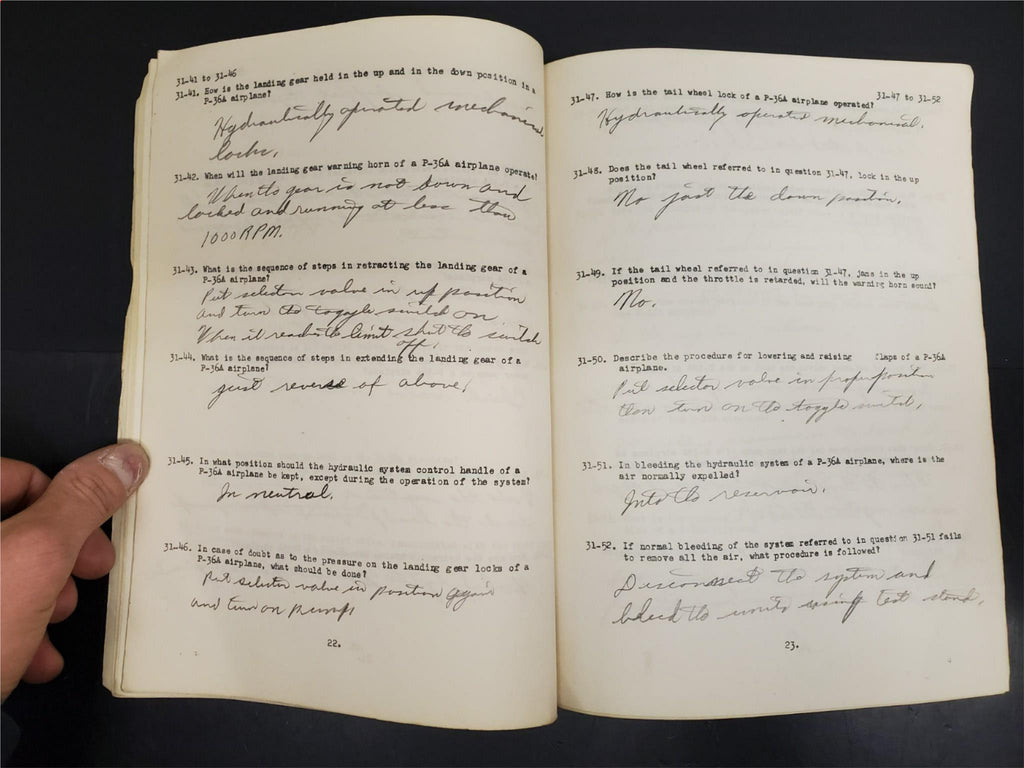 31-41 to 31-46
31-41. How is the landing gear held in the up and in the down position in a
P-36A airplane?
Hydraulically operated mechanical
locks.
31-42. When will the landing gear warning horn of a P-36A airplane operate?
When the gear is not down and
locked and running at less than
1000 RPM.
31-43. What is the sequence of steps in retracting the landing gear of a
P-36A airplane?
Put selector valve in up position
and turn the toggle switch on
When it reaches the limit shut the switch
off.
31-44. What is the sequence of steps in extending the landing gear of a
P-36A airplane?
just reverse of above.
31-45. In what position should the hydraulic system control handle of a
P-36A airplane be kept, except during the operation of the system?
In neutral.
31-46. In case of doubt as to the pressure on the landing gear locks of a
P-36A airplane, what should be done?
Put selector valve in position again
and turn on pump
22.
31-47 to 31-52
31-47. How is the tail wheel lock of a P-36A airplane operated?
Hydraulically operated mechanical.
31-48. Does the tail wheel referred to in question 31-47, lock in the up
position?
No just the down position.
31-49. If the tail wheel referred to in question 31-47, jams in the up
position and the throttle is retarded, will the warning horn sound?
No.
31-50. Describe the procedure for lowering and raising flaps of a P-36A
airplane.
Put selector valve in proper position
then turn on the toggle switch.
31-51. In bleeding the hydraulic system of a P-36A airplane, where is the
air normally expelled?
Into the reservoir.
31-52. If normal bleeding of the system referred to in question 31-51 fails
to remove all the air, what procedure is followed?
Disconnect the system and
bleed the units using test stand.
23.